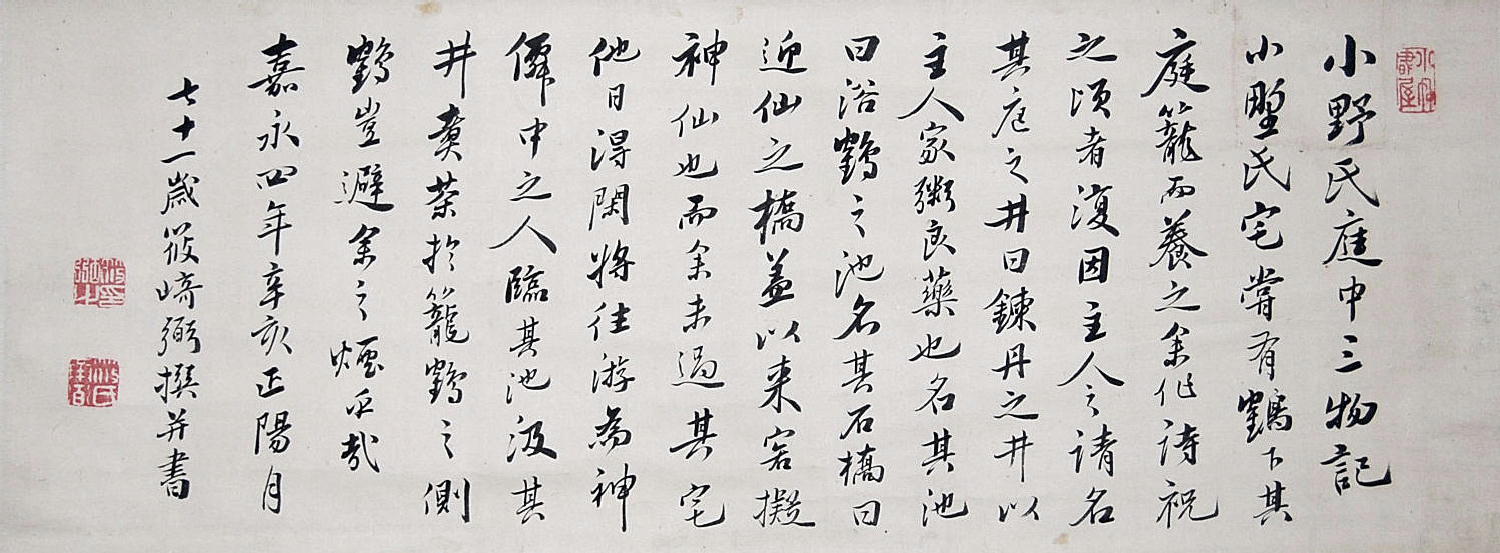 小野氏庭中三物記
小墅氏宅嘗有鶴下其
庭籠而養之余作詩祝
之頃者復因主人之請名
其庭之井曰鍊丹之井以
主人家粥良藥也名其池
曰浴鶴之池名其石橋曰
迎仙之橋蓋以来客擬
神仙也而余未過其宅
他日得閑将往游為神
僊中之人臨其池汲其
井煑茶於籠鶴之側
鶴豈避余之煙乎哉
嘉永四年辛亥正陽月
七十一歳筱崎弼撰并書